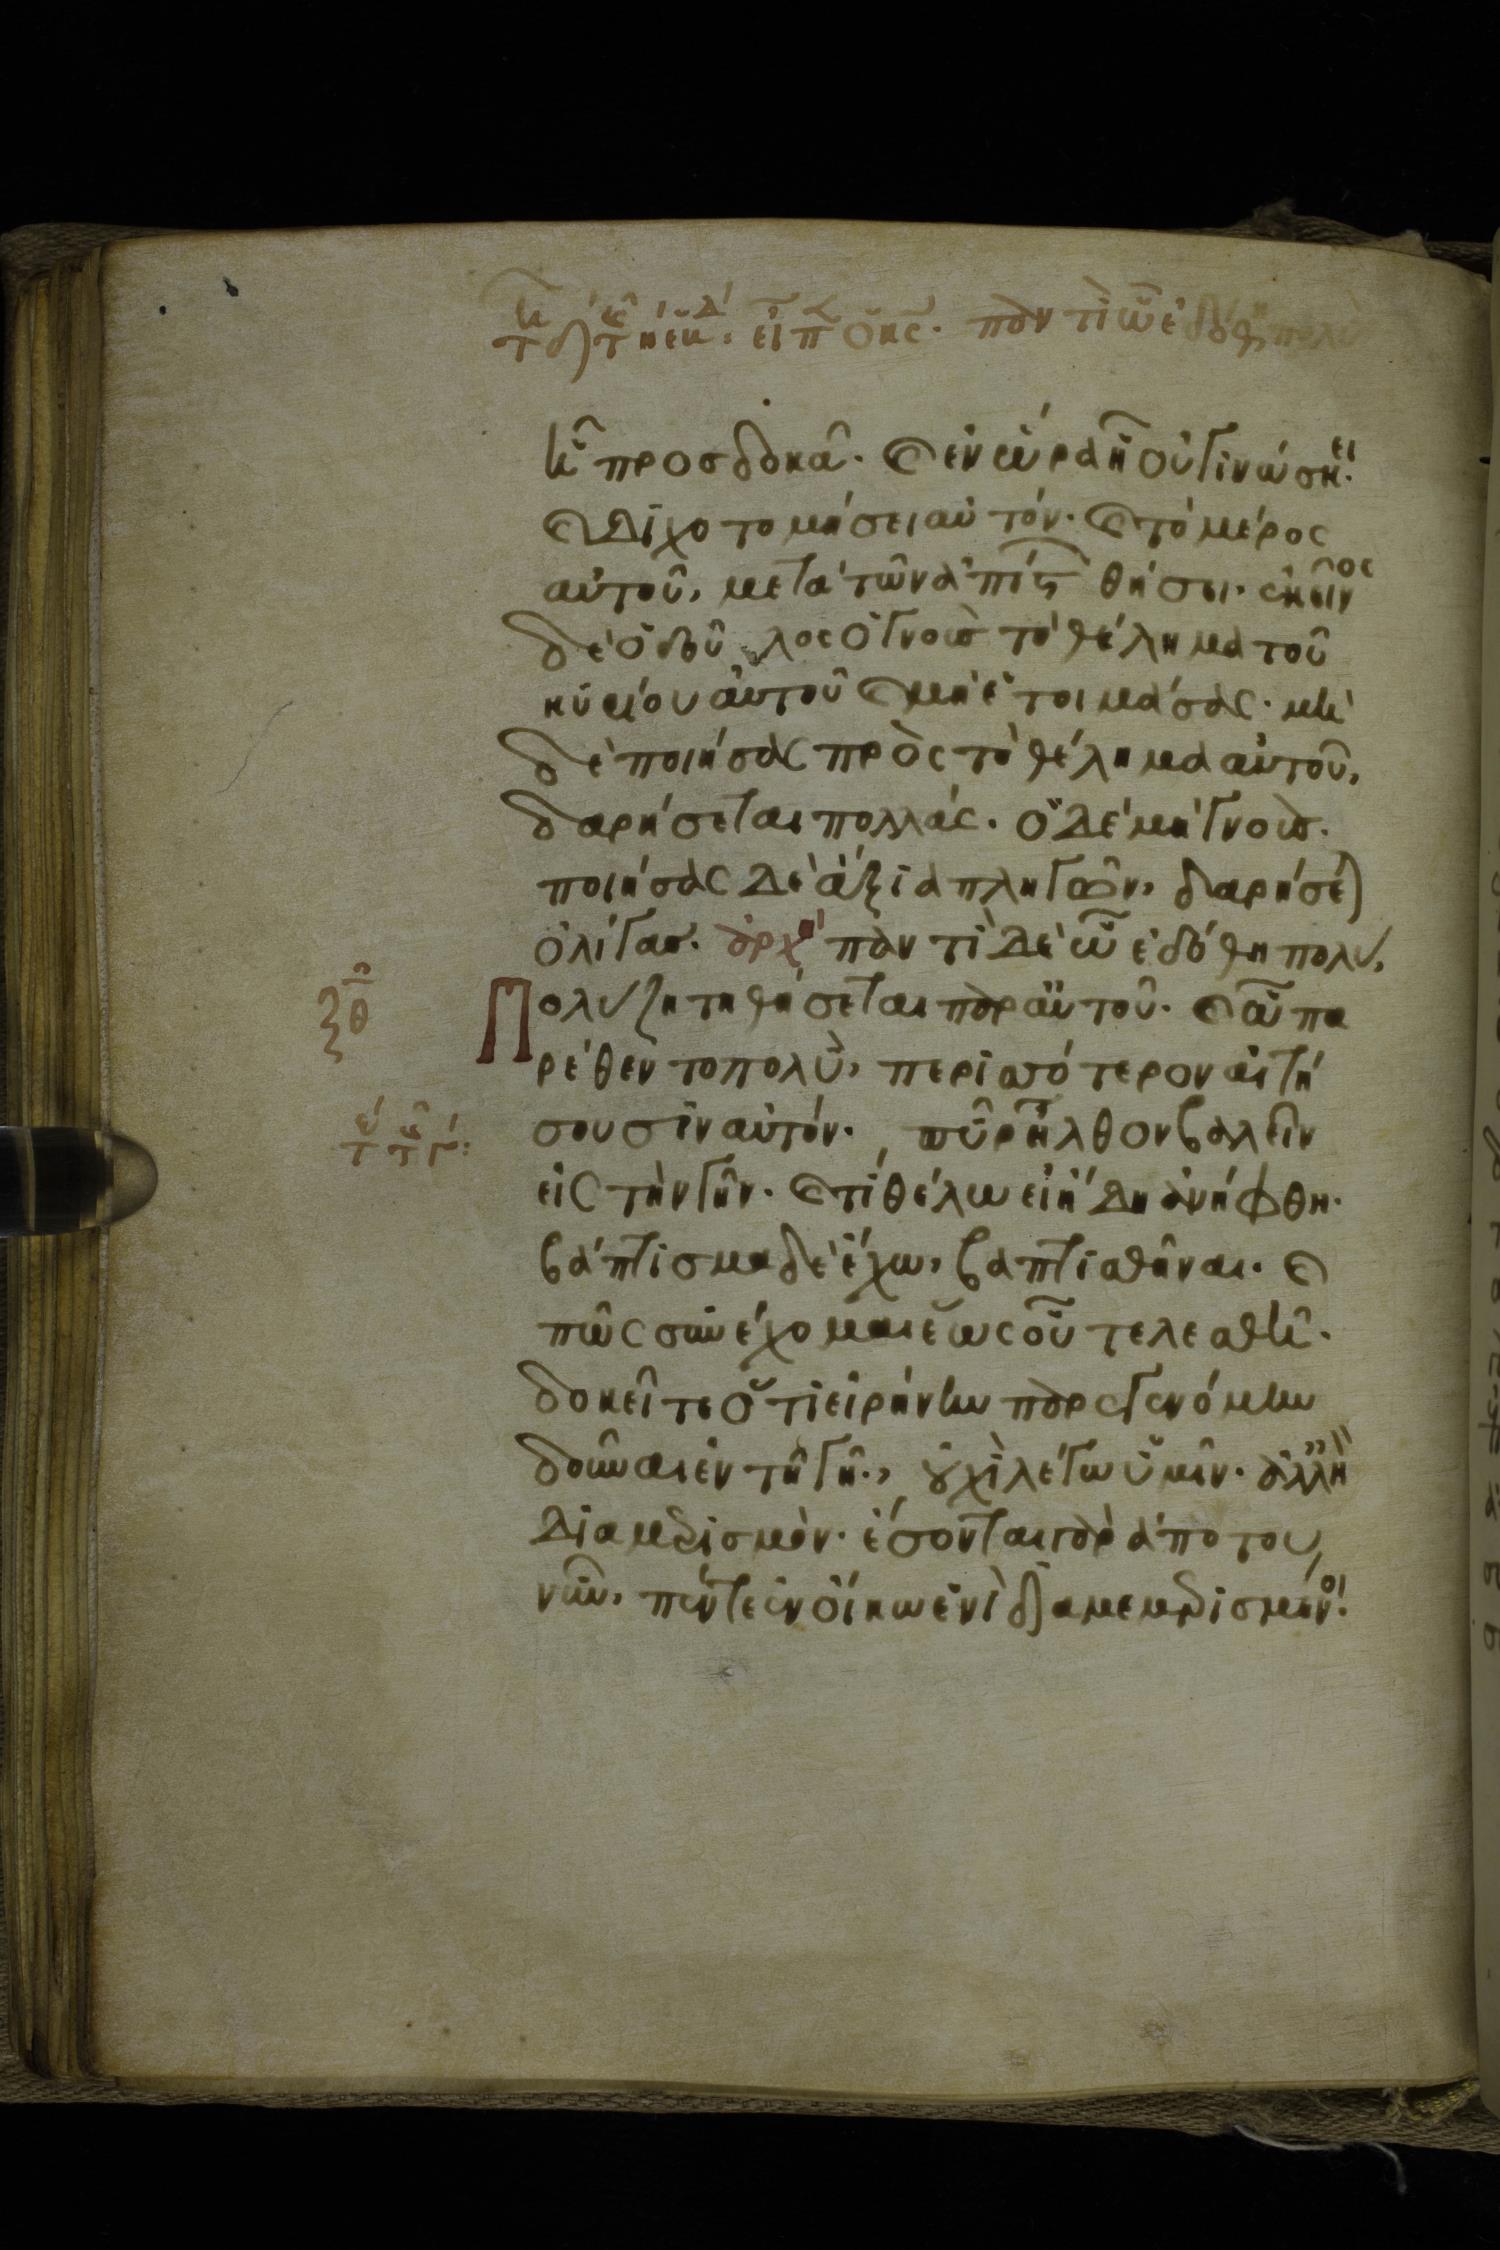 εἶπεν ὁ κς. παντὶ ὧ ἐδόθη πολὺ
οὐ προσδοκᾶ. καὶ ἐν ὥρα ἧ οὐ γινώσκει.
καὶ διχοτομήσει αὐτόν. καὶ τὸ μέρος
αὐτοῦ, μετὰ τῶν ἀπίστων θήσει. ἐκεῖνος
δὲ ὁ δοῦλος ὁ γνοὺς τὸ θέλημα τοῦ
κυρίου αὐτοῦ καὶ μὴ ἑτοιμάσας. μὴ
δὲ ποιήσας πρὸς τὸ θέλημα αὐτοῦ,
δαρήσεται πολλάς. ὁ δὲ μὴ γνοὺς.
ποιήσας δὲ ἄξια πληγῶν, δαρήσεται
ὀλίγας. ἀρχ παντὶ δὲ ὧ ἐδόθη πολύ,
Πολὺ ζητηθήσεται παρ αὐτοῦ. καὶ ὧ πα
ξθ
ρέθεντο πολὺ, περισσότερον αἰτή
σουσιν αὐτόν. πῦρ ἦλθον βαλεῖν
εἰς τὴν γῆν. καὶ τί θέλω εἰ ἤδη ἀνήφθη.
βάπτισμα δὲ ἔχω, βαπτισθῆναι. καὶ
πῶς συνέχομαι ἕως οὗ τελεσθῆ.
δοκεῖτε ὅτι εἰρήνην παρεγενόμην
δοῦναι ἐν τῆ γῆ., οὐχὶ λέγω ὑμῖν. ἀλλ ἢ
διαμερισμὸν. ἔσονται γὰρ ἀπο του
νῦν, πέντε ἐν οἴκω ἑνὶ διαμεμερισμένοι.